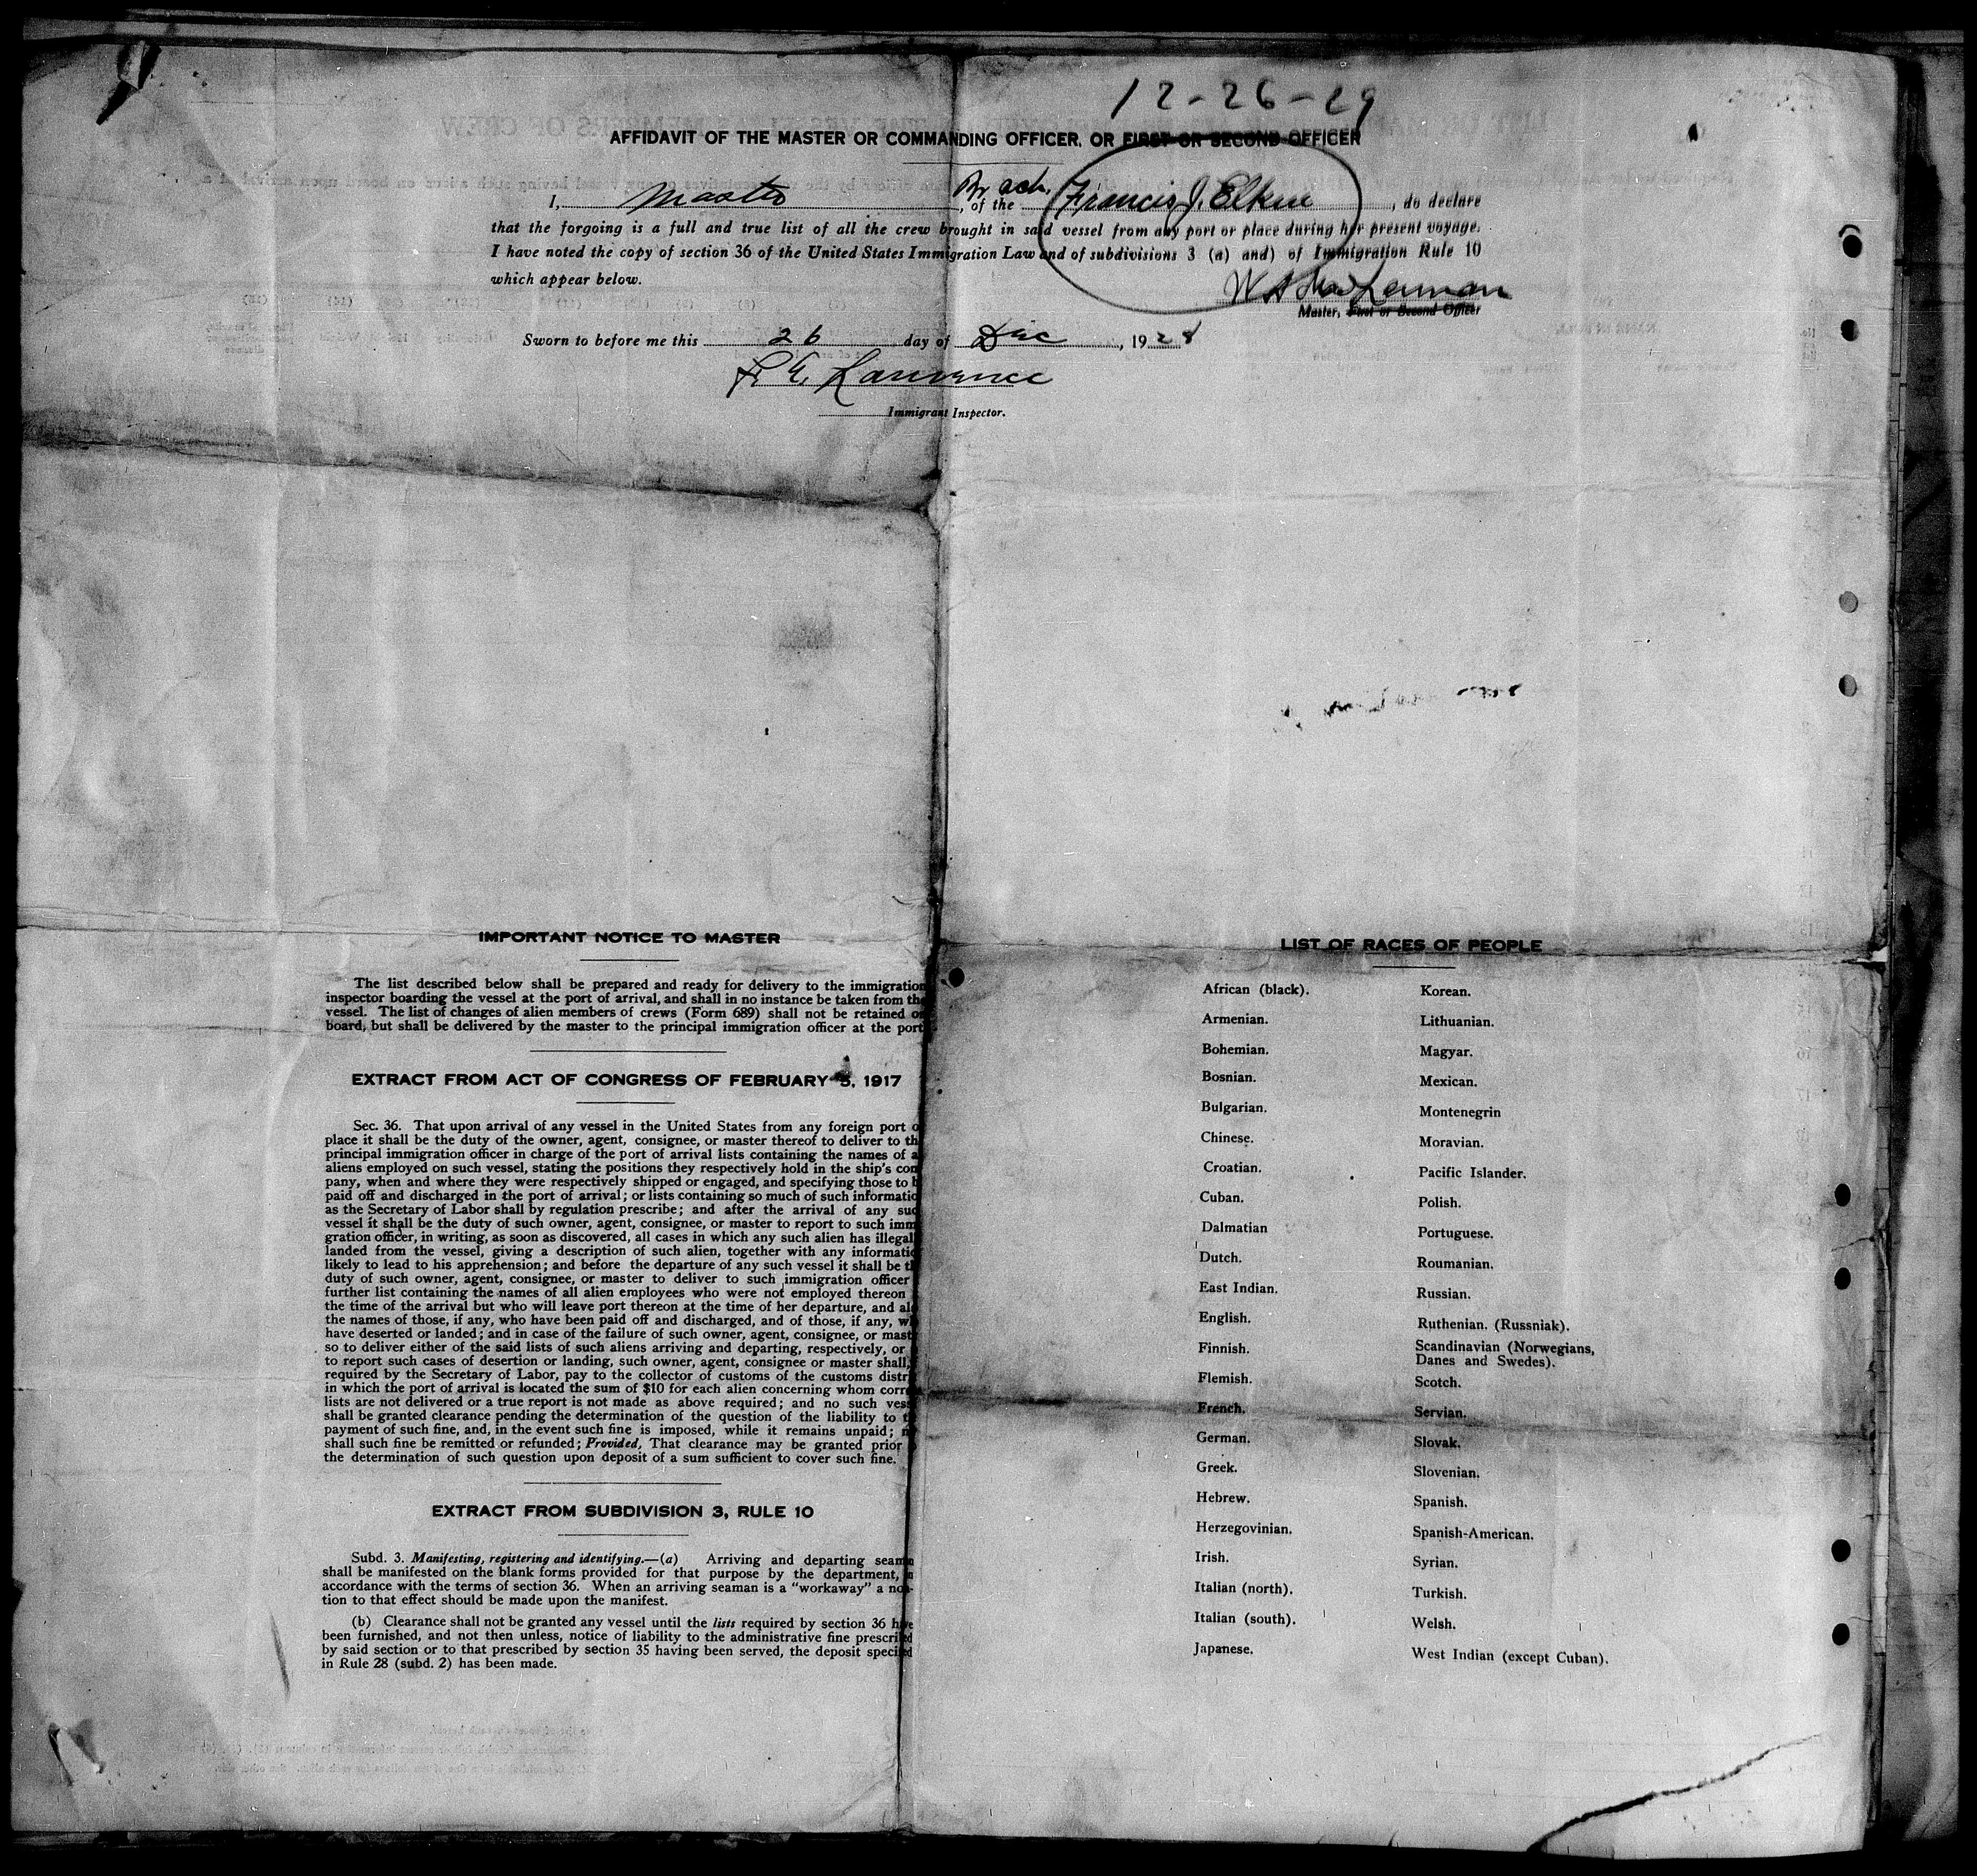 12-26-29
AFFIDAVIT OF THE MASTER OR COMMANDING OFFICER, OR FIRST OR SECOND OFFICER
I, Master, of the Br sch. Francis J. Elkine, do declare
that the forgoing is a full and true list of all the crew brought in said vessel from any port or place during her present voyage.
I have noted the copy of section 36 of the United States Immigration Law and of subdivisions 3 (a) and) of Immigration Rule 10
which appear below.
Master, First or Second Officer
Sworn to before me this 26 day of Dec, 1928
Lawrence
Immigrant Inspector.
IMPORTANT NOTICE TO MASTER
The list described below shall be prepared and ready for delivery to the immigration
inspector boarding the vessel at the port of arrival, and shall in no instance be taken from the
vessel. The list of changes of alien members of crews (Form 689) shall not be retained on
board, but shall be delivered by the master to the principal immigration officer at the port
EXTRACT FROM ACT OF CONGRESS OF FEBRUARY 5, 1917
Sec. 36. That upon arrival of any vessel in the United States from any foreign port o
place it shall be the duty of the owner, agent, consignee, or master thereof to deliver to th
principal immigration officer in charge of the port of arrival lists containing the names of a
aliens employed on such vessel, stating the positions they respectively hold in the ship's com
pany, when and where they were respectively shipped or engaged, and specifying those to b
paid off and discharged in the port of arrival; or lists containing so much of such informatio
as the Secretary of Labor shall by regulation prescribe; and after the arrival of any suc
vessel it shall be the duty of such owner, agent, consignee, or master to report to such imm
gration officer, in writing, as soon as discovered, all cases in which any such alien has illegal
landed from the vessel, giving a description of such alien, together with any informatio
likely to lead to his apprehension; and before the departure of any such vessel it shall be th
duty of such owner, agent, consignee, or master to deliver to such immigration officer
further list containing the names of all alien employees who were not employed thereon
the time of the arrival but who will leave port thereon at the time of her departure, and als
the names of those, if any, who have been paid off and discharged, and of those, if any, wh
have deserted or landed; and in case of the failure of such owner, agent, consignee, or mast
so to deliver either of the said lists of such aliens arriving and departing, respectively, or
to report such cases of desertion or landing, such owner, agent, consignee or master shall,
required by the Secretary of Labor, pay to the collector of customs of the customs distri
in which the port of arrival is located the sum of $10 for each alien concerning whom corre
lists are not delivered or a true report is not made as above required; and no such vess
shall be granted clearance pending the determination of the question of the liability to t
payment of such fine, and, in the event such fine is imposed, while it remains unpaid; n
shall such fine be remitted or refunded; Provided, That clearance may be granted prior
the determination of such question upon deposit of a sum sufficient to cover such fine.
EXTRACT FROM SUBDIVISION 3, RULE 10
Subd. 3. Manifesting, registering and identifying.—(a) Arriving and departing seamen
shall be manifested on the blank forms provided for that purpose by the department, in
accordance with the terms of section 36. When an arriving seaman is a "workaway" a nota-
tion to that effect should be made upon the manifest.
(b) Clearance shall not be granted any vessel until the lists required by section 36 have
been furnished, and not then unless, notice of liability to the administrative fine prescribed
by said section or to that prescribed by section 35 having been served, the deposit specified
in Rule 28 (subd. 2) has been made.
LIST OF RACES OF PEOPLE
African (black).
Armenian.
Bohemian.
Bosnian.
Bulgarian.
Chinese.
Croatian.
Cuban.
Dalmatian
Dutch.
East Indian.
English.
Finnish.
Flemish.
French.
German.
Greek.
Hebrew.
Herzegovinian.
Irish.
Italian (north).
Italian (south).
Japanese.
Korean.
Lithuanian.
Magyar.
Mexican.
Montenegrin
Moravian.
Pacific Islander.
Polish.
Portuguese.
Roumanian.
Russian.
Ruthenian. (Russniak).
Scandinavian (Norwegians,
Danes and Swedes).
Scotch.
Servian.
Slovak.
Slovenian.
Spanish.
Spanish-American.
Syrian.
Turkish.
Welsh.
West Indian (except Cuban).